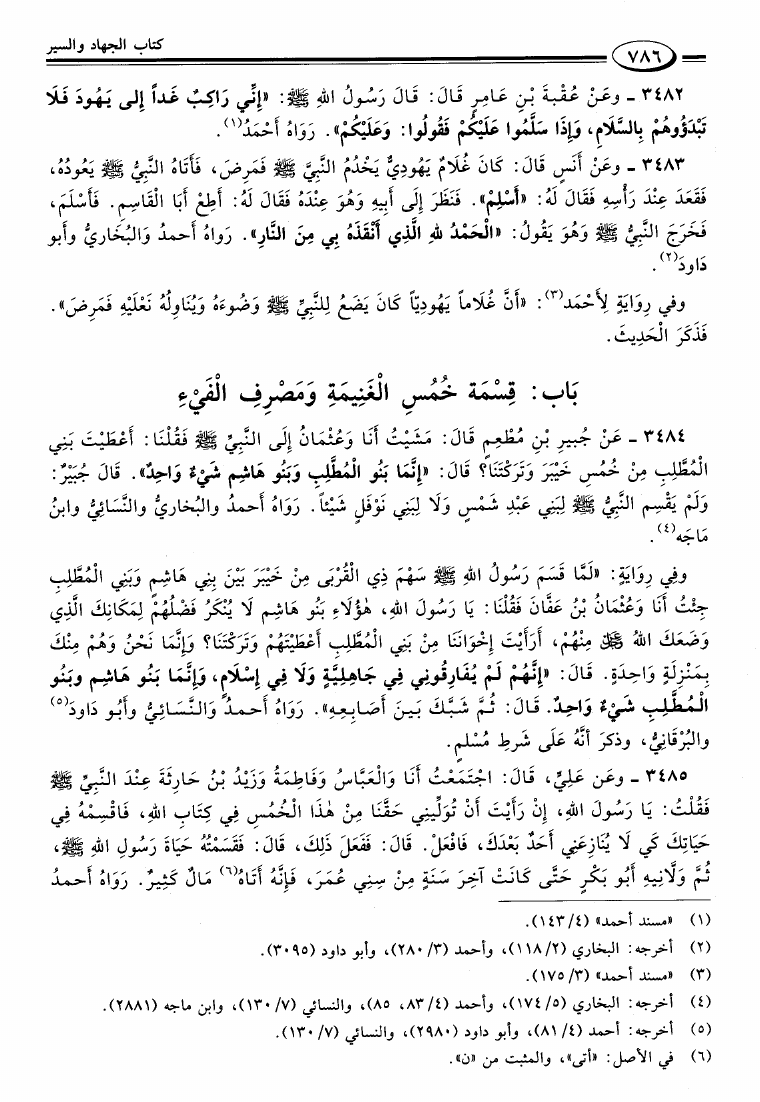 كتاب الجهاد والسير
٧٨٦
٣٤٨٢ ـ وعَنْ عُقْبةَ بْنِ عَامِرٍ قَالَ: قَالَ رَسُولُ اللهِ ﷺ: «إِنِّي رَاكِبٌ غَداً إلى يَهُودَ فَلَا
تَبْدَؤُوهُمْ بِالسَّلَامِ، وَإِذَا سَلَّمُوا عَلَيْكُمْ فَقُولُوا: وَعَلَيْكُمْ». رَوَاهُ أَحْمَدُ(١).
٣٤٨٣ ـ وعَنْ أَنَسٍ قَالَ: كَانَ غُلَامٌ يَهُودِيٌّ يَخْدُمُ النَّبِيَّ ﷺ فَمَرِضَ، فَأَتَاهُ النَّبِيُّ ﷺ يَعُودُهُ،
فَقَعَدَ عِنْدَ رَأْسِهِ فَقَالَ لَهُ: «أَسْلِمْ». فَنَظَرَ إِلَى أَبِيهِ وَهُوَ عِنْدَهُ فَقَالَ لَهُ: أَطِعْ أَبَا الْقَاسِمِ. فَأَسْلَمَ،
فَخَرَجَ النَّبِيُّ ﷺ وَهُوَ يَقُولُ: «الْحَمْدُ للهِ الَّذِي أَنْقَذَهُ بِي مِنَ النَّارِ». رَواهُ أحمدُ وَالبُخَاريُّ وأبو
دَاودَ(٢).
وفي رِوَايَةٍ لِأَحْمَد(٣): «أَنَّ غُلَاماً يَهُودِيّاً كَانَ يَضَعُ لِلنَّبِيِّ ﷺ وَضُوءَهُ وَيُنَاوِلُهُ نَعْلَيْهِ فَمَرِضَ».
فَذَكَرَ الْحَدِيثَ.
بَاب: قِسْمَة خُمُسِ الْغَنِيمَةِ وَمَصْرِفِ الْفَيْءِ
٣٤٨٤ ـ عَنْ جُبيرِ بْنِ مُطْعِمٍ قَالَ: مَشَيْتُ أَنَا وَعُثْمَانُ إِلَى النَّبِيِّ ﷺ فَقُلْنَا: أَعْطَيْتَ بَنِي
الْمُطَّلِبِ مِنْ خُمُسِ خَيْبَرَ وَتَرَكْتَنَا؟ قَالَ: «إِنَّمَا بَنُو الْمُطَّلِبِ وَبَنُو هَاشِمٍ شَيْءٌ وَاحِدٌ». قَالَ جُبَيْرٌ:
وَلَمْ يَقْسِمِ النَّبِيُّ ﷺ لِبَنِي عَبْدِ شَمْسٍ وَلَا لِبَنِي نَوْفَلٍ شَيْئاً. رَوَاهُ أَحمدُ والبُخاريُّ والنَّسَائِيُّ وابنُ
مَاجَه(٤).
وفِي رِوَايَةٍ: «لَمَّا قَسَمَ رَسُولُ اللهِ ﷺ سَهْمَ ذِي الْقُرْبَى مِنْ خَيْبَرَ بَيْنَ بِنِي هَاشِمٍ وَبَنِي الْمُطَّلِبِ
جِئْتُ أَنَا وَعُثْمَانُ بْنُ عَفَّانَ فَقُلْنَا: يا رَسُولَ اللهِ، هٰؤُلَاءِ بَنُو هَاشِمٍ لَا يُنْكَرُ فَضْلُهُمْ لِمَكَانِكَ الَّذِي
وَضَعَكَ اللهُ ﷻ مِنْهُمْ، أَرَأَيْتَ إِخْوَانَنَا مِنْ بَنِي الْمُطَّلِبِ أَعْطَيْتَهُمْ وَتَرَكْتَنَا؟ وَإِنَّمَا نَحْنُ وَهُمْ مِنْكَ
بِمَنْزِلَةٍ وَاحِدَةٍ. قَالَ: «إِنَّهُمْ لَمْ يُفَارِقُونِي فِي جَاهِلِيَّةٍ وَلَا فِي إِسْلَامٍ، وَإِنَّمَا بَنُو هَاشِمٍ وبَنُو
الْمُطَّلِبِ شَيْءٌ وَاحِدٌ. قَالَ: ثُمَّ شَبَّكَ بَينَ أَصَابِعِهِ». رَوَاهُ أَحمدُ والنَّسَائيُّ وأبُو دَاودَ(٥)
والبُرْقانِيُّ، وذكرَ أنَّهُ عَلَى شَرطِ مُسْلمٍ.
٣٤٨٥ ـ وعَن عَلِيٍّ، قَالَ: اجْتَمَعْتُ أَنَا وَالْعَبَّاسُ وَفَاطِمَةُ وَزَيْدُ بْنُ حَارِثَةَ عِنْدَ النَّبِيِّ ﷺ
فَقُلْتُ: يَا رَسُولَ اللهِ، إِنْ رَأَيْتَ أَنْ تُوَلِّيَنِي حَقَّنَا مِنْ هٰذَا الْخُمُسِ فِي كِتَابِ اللهِ، فَاقْسِمْهُ فِي
حَيَاتِكَ كَي لَا يُنَازِعَنِي أَحَدٌ بَعْدَكَ، فَافْعَلْ. قَالَ: فَفَعَلَ ذٰلِكَ، قَالَ: فَقَسَمْتُهُ حَيَاةَ رَسُولِ اللهِ ﷺ،
ثُمَّ وَلَّانِيهِ أَبُو بَكْرٍ حَتَّى كَانَتْ آخِرَ سَنَةٍ مِنْ سِنِي عُمَرَ، فَإِنَّهُ أَتَاهُ(٦) مَالٌ كَثِيرٌ. رَوَاهُ أَحمدُ
(١) «مسند أحمد» (٤/ ١٤٣).
(٢) أخرجه: البخاري (٢/ ١١٨)، وأحمد (٣/ ٢٨٠)، وأبو داود (٣٠٩٥).
(٣) «مسند أحمد» (٣/ ١٧٥).
(٤) أخرجه: البخاري (٥/ ١٧٤)، وأحمد (٤/ ٨٣، ٨٥)، والنسائي (٧/ ١٣٠)، وابن ماجه (٢٨٨١).
(٥) أخرجه: أحمد (٤/ ٨١)، وأبو داود (٢٩٨٠)، والنسائي (٧/ ١٣٠).
(٦) في الأصل: «أتى»، والمثبت من «ن».